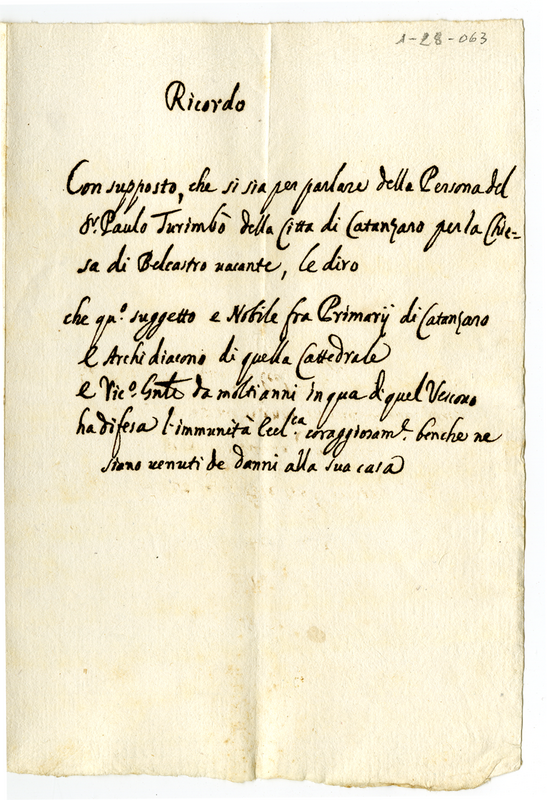 1-28-063
Ricordo
Con supposto, che si sia per parlare della Persona del
Sr. Paulo Turimbò della Citta di Catanzaro per la Chie=
sa di Belcastro vacante, le diro
che quo. suggetto e Nobile fra Primarij di Catanzaro
e Archidiacono di quella Cattedrale
e Vico. Gnle da molti anni in qua di quel Vescouo
ha difesa l'immunità Eccl.ca coraggiosamte. benche ne
siano uenuti de danni alla sua casa